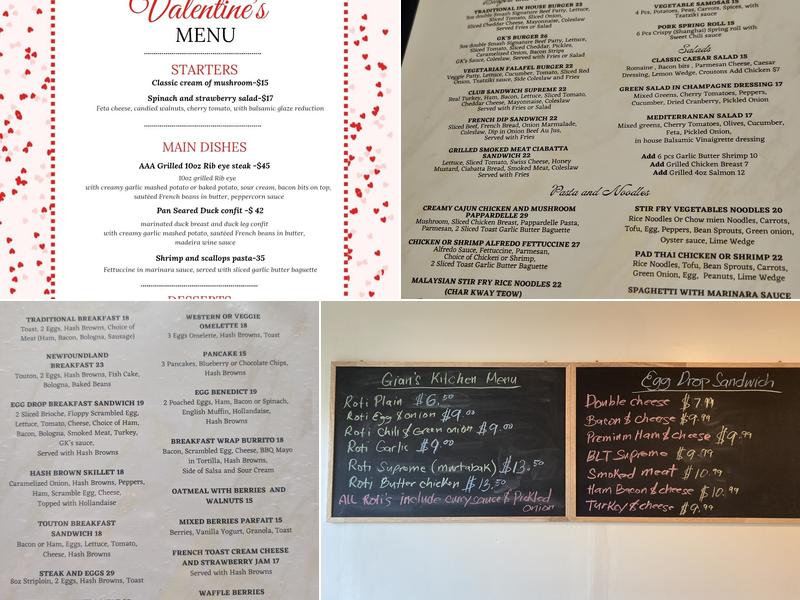 Valentine's
MENU
STARTERS
Classic cream of mushroom~$15
Spinach and strawberry salad~$17
Feta cheese, candied walnuts, cherry tomato, with balsamic glaze reduction
MAIN DISHES
AAA Grilled 10oz Rib eye steak ~$45
10oz grilled Rib eye
with creamy garlic mashed potato or baked potato, sour cream, bacon bits on top,
sautéed French beans in butter, peppercorn sauce
Pan Seared Duck confit ~$ 42
marinated duck breast and duck leg confit
with creamy garlic mashed potato, sautéed French beans in butter,
madeira wine sauce
Shrimp and scallops pasta~35
Fettuccine in marinara sauce, served with sliced garlic butter baguette
DESSERTS
TRADITIONAL IN HOUSE BURGER 22
5oz double Smash Signature Beef Patty, Lettuce,
Sliced Tomato, Sliced Onion,
Sliced Cheddar Cheese, Mayonnaise, Coleslaw
Served with Fries
GK'S BURGER 26
5oz double Smash Signature Beef Patty, Lettuce,
Sliced Tomato, Sliced Cheddar, Pickles,
Caramelized Onion, Bacon Strips
GK's Sauce, Coleslaw, Served with Fries or Salad
VEGETARIAN FALAFEL BURGER 22
Veggie Patty, Lettuce, Cucumber, Tomato, Sliced Red
Onion, Tzatziki sauce, Side Coleslaw and Fries
CLUB SANDWICH SUPREME 22
Real Turkey, Ham, Bacon, Lettuce, Sliced Tomato,
Cheddar Cheese, Mayonnaise, Coleslaw
Served with Fries or Salad
FRENCH DIP SANDWICH 22
Sliced Beef, French Bread, Onion Marmalade,
Coleslaw, Dip in Onion Beef Au Jus,
Served with Fries
GRILLED SMOKED MEAT CIABATTA
SANDWICH 22
Lettuce, Sliced Tomato, Swiss Cheese, Honey
Mustard, Ciabatta Bread, Smoked Meat, Coleslaw
Served with Fries
VEGETABLE SAMOSAS 15
4 Pcs, Potatoes, Peas, Carrots, Spices, with
Tzatziki sauce
PORK SPRING ROLL 15
6 Pcs Crispy (Shanghai) Spring Roll with
Sweet Chili sauce
Salads
CLASSIC CAESAR SALAD 15
Romaine , Bacon bits , Parmesan Cheese, Caesar
Dressing, Lemon Wedge, Croutons Add Chicken $7
GREEN SALAD IN CHAMPAGNE DRESSING 17
Mixed Greens, Cherry Tomatoes, Olives,
Cucumber, Dried Cranberry, Pickled Onion
MEDITERRANEAN SALAD 17
Mixed greens, Cherry Tomatoes, Olives, Cucumber,
Feta, Pickled Onion,
in house Balsamic Vinaigrette dressing
Add 6 pcs Garlic Butter Shrimp 10
Add Grilled Chicken Breast 7
Add Grilled 4oz Salmon 12
Pasta and Noodles
CREAMY CAJUN CHICKEN AND MUSHROOM
PAPPARDELLE 29
Mushroom, Sliced Chicken Breast, Pappardelle Pasta,
Parmesan, 2 Sliced Toast Garlic Butter Baguette
CHICKEN OR SHRIMP ALFREDO FETTUCCINE 27
Alfredo Sauce, Fettuccine, Parmesan,
Choice of Chicken or Shrimp,
2 Sliced Toast Garlic Butter Baguette
MALAYSIAN STIR FRY RICE NOODLES 22
(CHAR KWAY TEOW)
STIR FRY VEGETABLES NOODLES 20
Rice Noodles Or Chow mien Noodles, Carrots,
Tofu, Egg, Peppers, Bean Sprouts, Green onion,
Oyster sauce, Lime Wedge
PAD THAI CHICKEN OR SHRIMP 22
Rice Noodles, Tofu, Bean Sprouts, Carrots,
Green Onion, Egg, Peanuts, Lime Wedge
SPAGHETTI WITH MARINARA SAUCE
TRADITIONAL BREAKFAST 18
Toast, 2 Eggs, Hash Browns, Choice of
Meat (Ham, Bacon, Bologna, Sausage)
NEWFOUNDLAND
BREAKFAST 23
Touton, 2 Eggs, Hash Browns, Fish Cake,
Bologna, Baked Beans
EGG DROP BREAKFAST SANDWICH 19
2 Sliced Brioche, Floppy Scrambled Egg,
Lettuce, Tomato, Cheese, Choice of Ham,
Bacon, Bologna, Smoked Meat, Turkey,
GK's sauce,
Served with Hash Browns
HASH BROWN SKILLET 18
Caramelized Onion, Hash Browns, Peppers,
Ham, Scramble Egg, Cheese,
Topped with Hollandaise
TOUTON BREAKFAST
SANDWICH 18
Bacon or Ham, Eggs, Lettuce, Tomato,
Cheese, Hash Browns
STEAK AND EGGS 29
8oz Striploin, 2 Eggs, Hash Browns, Toast
WESTERN OR VEGGIE
OMELETTE 18
3 Eggs Omelette, Hash Browns, Toast
PANCAKE 15
3 Pancakes, Blueberry or Chocolate Chips,
Hash Browns
EGG BENEDICT 19
2 Poached Eggs, Ham, Bacon or Spinach,
English Muffin, Hollandaise,
Hash Browns
BREAKFAST WRAP BURRITO 18
Bacon, Scrambled Egg, Cheese, BBQ Mayo
in Tortilla, Hash Browns,
Side of Salsa and Sour Cream
OATMEAL WITH BERRIES AND
WALNUTS 15
MIXED BERRIES PARFAIT 15
Berries, Vanilla Yogurt, Granola, Toast
FRENCH TOAST CREAM CHEESE
AND STRAWBERRY JAM 17
Served with Hash Browns
WAFFLE BERRIES
Gian's Kitchen Menu
Roti Plain $6.50
Roti Egg & onion $9.00
Roti Chili & Green onion $9.00
Roti Garlic $9.00
Roti Supreme (murtabak) $13.50
Roti Butter chicken $13.50
ALL Roti's include curry sauce & Pickled
onion
Egg Drop Sandwich
Double cheese $7.99
Bacon & cheese $9.99
Premium Ham & cheese $9.99
BLT Supreme $9.99
Smoked meat $10.99
Ham Bacon & cheese $10.99
Turkey & cheese $9.99